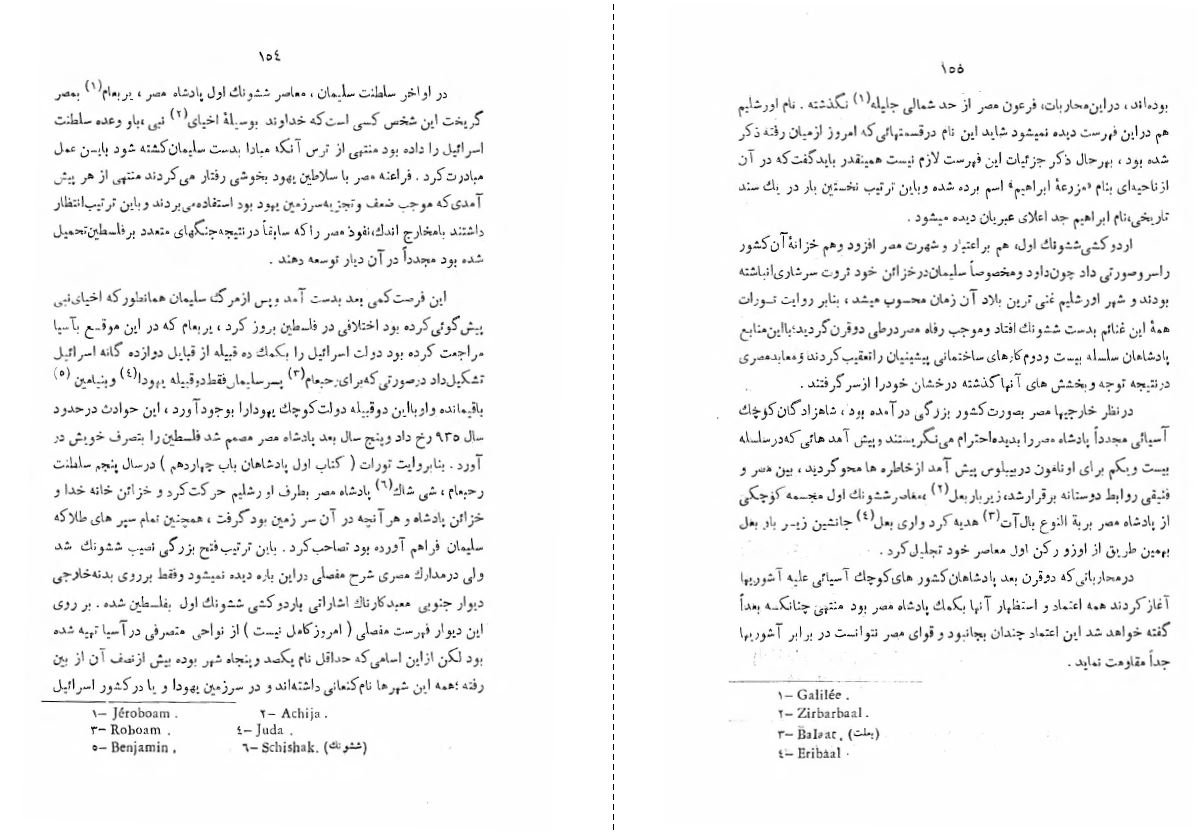 ١٥٤
در اواخر سلطنت سلیمان ، معاصر ششونك اول پادشاه مصر ، یربعام(١) بمصر
گریخت این شخص کسی است که خداوند بوسیلهٔ اخیای(٢) نبی ،باو وعده سلطنت
اسرائیل را داده بود منتهی از ترس آنکه مبادا بدست سلیمان کشته شود باین عمل
مبادرت کرد . فراعنه مصر با سلاطین یهود بخوشی رفتار می کردند منتهی از هر پیش
آمدی که موجب ضعف وتجزیه سرزمین یهود بود استفاده می بردند و باین ترتیب انتظار
داشتند بامخارج اندك،نفوذ مصر را که سابقاً در نتیجه جنگهای متعدد بر فلسطین تحمیل
شده بود مجدداً در آن دیار توسعه دهند .
این فرصت کمی بعد بدست آمد وپس ازمرگ سلیمان همانطور که اخیای نبی
پیش گوئی کرده بود اختلافی در فلسطین بروز کرد ، یربعام که در این موقع بآسیا
مراجعت کرده بود دولت اسرائیل را بکمك ده قبیله از قبایل دوازده گانه اسرائیل
تشکیل داد درصورتی که برای رحبعام(٣) پسر سلیمان فقط دو قبیله یهودا(٤) و بنیامین (٥)
باقیمانده واو با این دوقبیله دولت کوچك یهودارا بوجود آورد ، این حوادث درحدود
سال ٩٣٥ رخ داد و پنج سال بعد پادشاه مصر مصمم شد فلسطین را بتصرف خویش در
آورد . بنابروایت تورات ( کتاب اول پادشاهان باب چهاردهم ) درسال پنجم سلطنت
رحبعام ، شی شاك(٦) پادشاه مصر بطرف او رشلیم حرکت کرد و خزائن خانه خدا و
خزائن پادشاه و هر آنچه در آن سر زمین بود گرفت ، همچنین تمام سپر های طلا که
سلیمان فراهم آورده بود تصاحب کرد . باین ترتیب فتح بزرگی نصیب ششونك شد
ولی درمدارك مصری شرح مفصلی دراین باره دیده نمیشود وفقط برروی بدنه خارجی
دیوار جنوبی معبد کارناك اشاراتی باردو کشی ششونك اول بفلسطین شده . بر روی
این دیوار فهرست مفصلی ( امروز کامل نیست ) از نواحی متصرفی در آسیا تهیه شده
بود لکن ازاین اسامی که حداقل نام یکصد و پنجاه شهر بوده بیش از نصف آن از بین
رفته ؛همه این شهرها نام کنعانی داشته اند و در سرزمین یهودا و یا در کشور اسرائیل
١– Jéroboam . ٢– Achija .
٣– Roboam . ٤– Juda .
٥– Benjamin . ٦– Schishak. (ششونك)
١٥٥
بوده اند ، در این محاربات، فرعون مصر از حد شمالی جلیله(١) نگذشته . نام اورشلیم
هم در این فهرست دیده نمیشود شاید این نام در قسمتهائی که امروز ازمیان رفته ذکر
شده بود ، بهرحال ذکر جزئیات این فهرست لازم نیست همینقدر باید گفت که در آن
از ناحیه ای بنام «مزرعهٔ ابراهیم» اسم برده شده وباین ترتیب نخستین بار در یك سند
تاریخی،نام ابراهیم جد اعلای عبریان دیده میشود .
اردو کشی ششونك اول، هم بر اعتبار و شهرت مصر افزود وهم خزانهٔ آن کشور
راسر وصورتی داد چون داود و مخصوصاً سلیمان درخزائن خود ثروت سرشاری انباشته
بودند و شهر اورشلیم غنی ترین بلاد آن زمان محسوب میشد ، بنابر روایت تورات
همهٔ این غنائم بدست ششونك افتاد وموجب رفاه مصر درطی دوقرن گردید؛بااین منابع
پادشاهان سلسله بیست ودوم کارهای ساختمانی پیشینیان راتعقیب کردند ومعابد مصری
درنتیجه توجه و بخشش های آنها گذشته درخشان خودرا از سر گرفتند .
درنظر خارجیها مصر بصورت کشور بزرگی در آمده بود ، شاهزادگان کوچك
آسیائی مجدداً پادشاه مصر را بدیده احترام می نگریستند و پیش آمد هائی که در سلسله
بیست ویکم برای اونامون در بیبلوس پیش آمد از خاطره ها محو گردید ، بین مصر و
فنیقی روابط دوستانه برقرار شد، زیر بار بعل(٢) ،معاصر ششونك اول مجسمه کوچکی
از پادشاه مصر بربة النوع بال آت(٣) هدیه کرد واری بعل(٤) جانشین زیر بار بعل
بهمین طریق از اوزو رکن اول معاصر خود تجلیل کرد .
در محارباتی که دوقرن بعد پادشاهان کشور های کوچك آسیائی علیه آشوریها
آغاز کردند همه اعتماد و استظهار آنها بکمك پادشاه مصر بود منتهی چنانکه بعداً
گفته خواهد شد این اعتماد چندان بجانبود و قوای مصر نتوانست در برابر آشوریها
جداً مقاومت نماید .
١– Galilée .
٢– Zirbarbaal .
٣– Balaat . (بعلت)
٤– Eribaal .